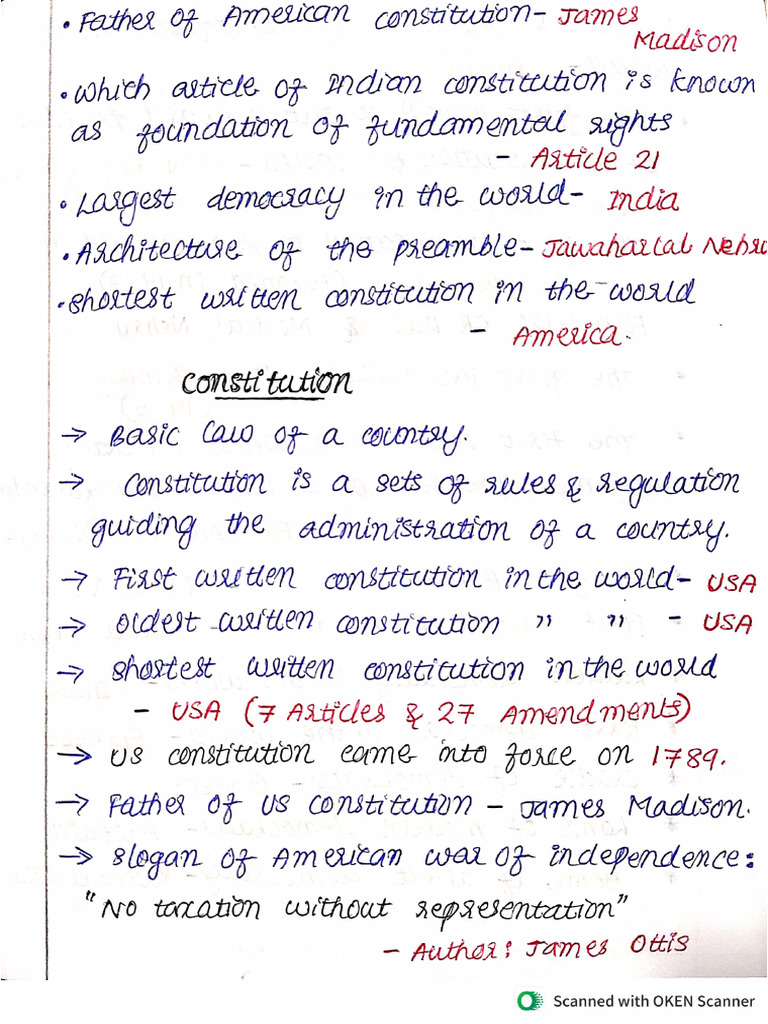 • Father of American constitution- James
Madison
• which article of Indian constitution is known
as foundation of fundamental rights
- Article 21
• Largest democracy in the world- India
• Architecture of the preamble- Jawaharlal Nehru
• shortest written constitution in the world
- America.
constitution
→ Basic law of a country.
→ Constitution is a sets of rules & regulation
guiding the administration of a country.
→ First written constitution in the world- USA
→ Oldest written constitution " " - USA
→ shortest written constitution in the world
- USA (7 Articles & 27 Amendments)
→ US constitution came into force on 1789.
→ Father of US constitution - James Madison.
→ slogan of American war of independence:
"No taxation without representation"
- Author: James Ottis
Scanned with OKEN Scanner